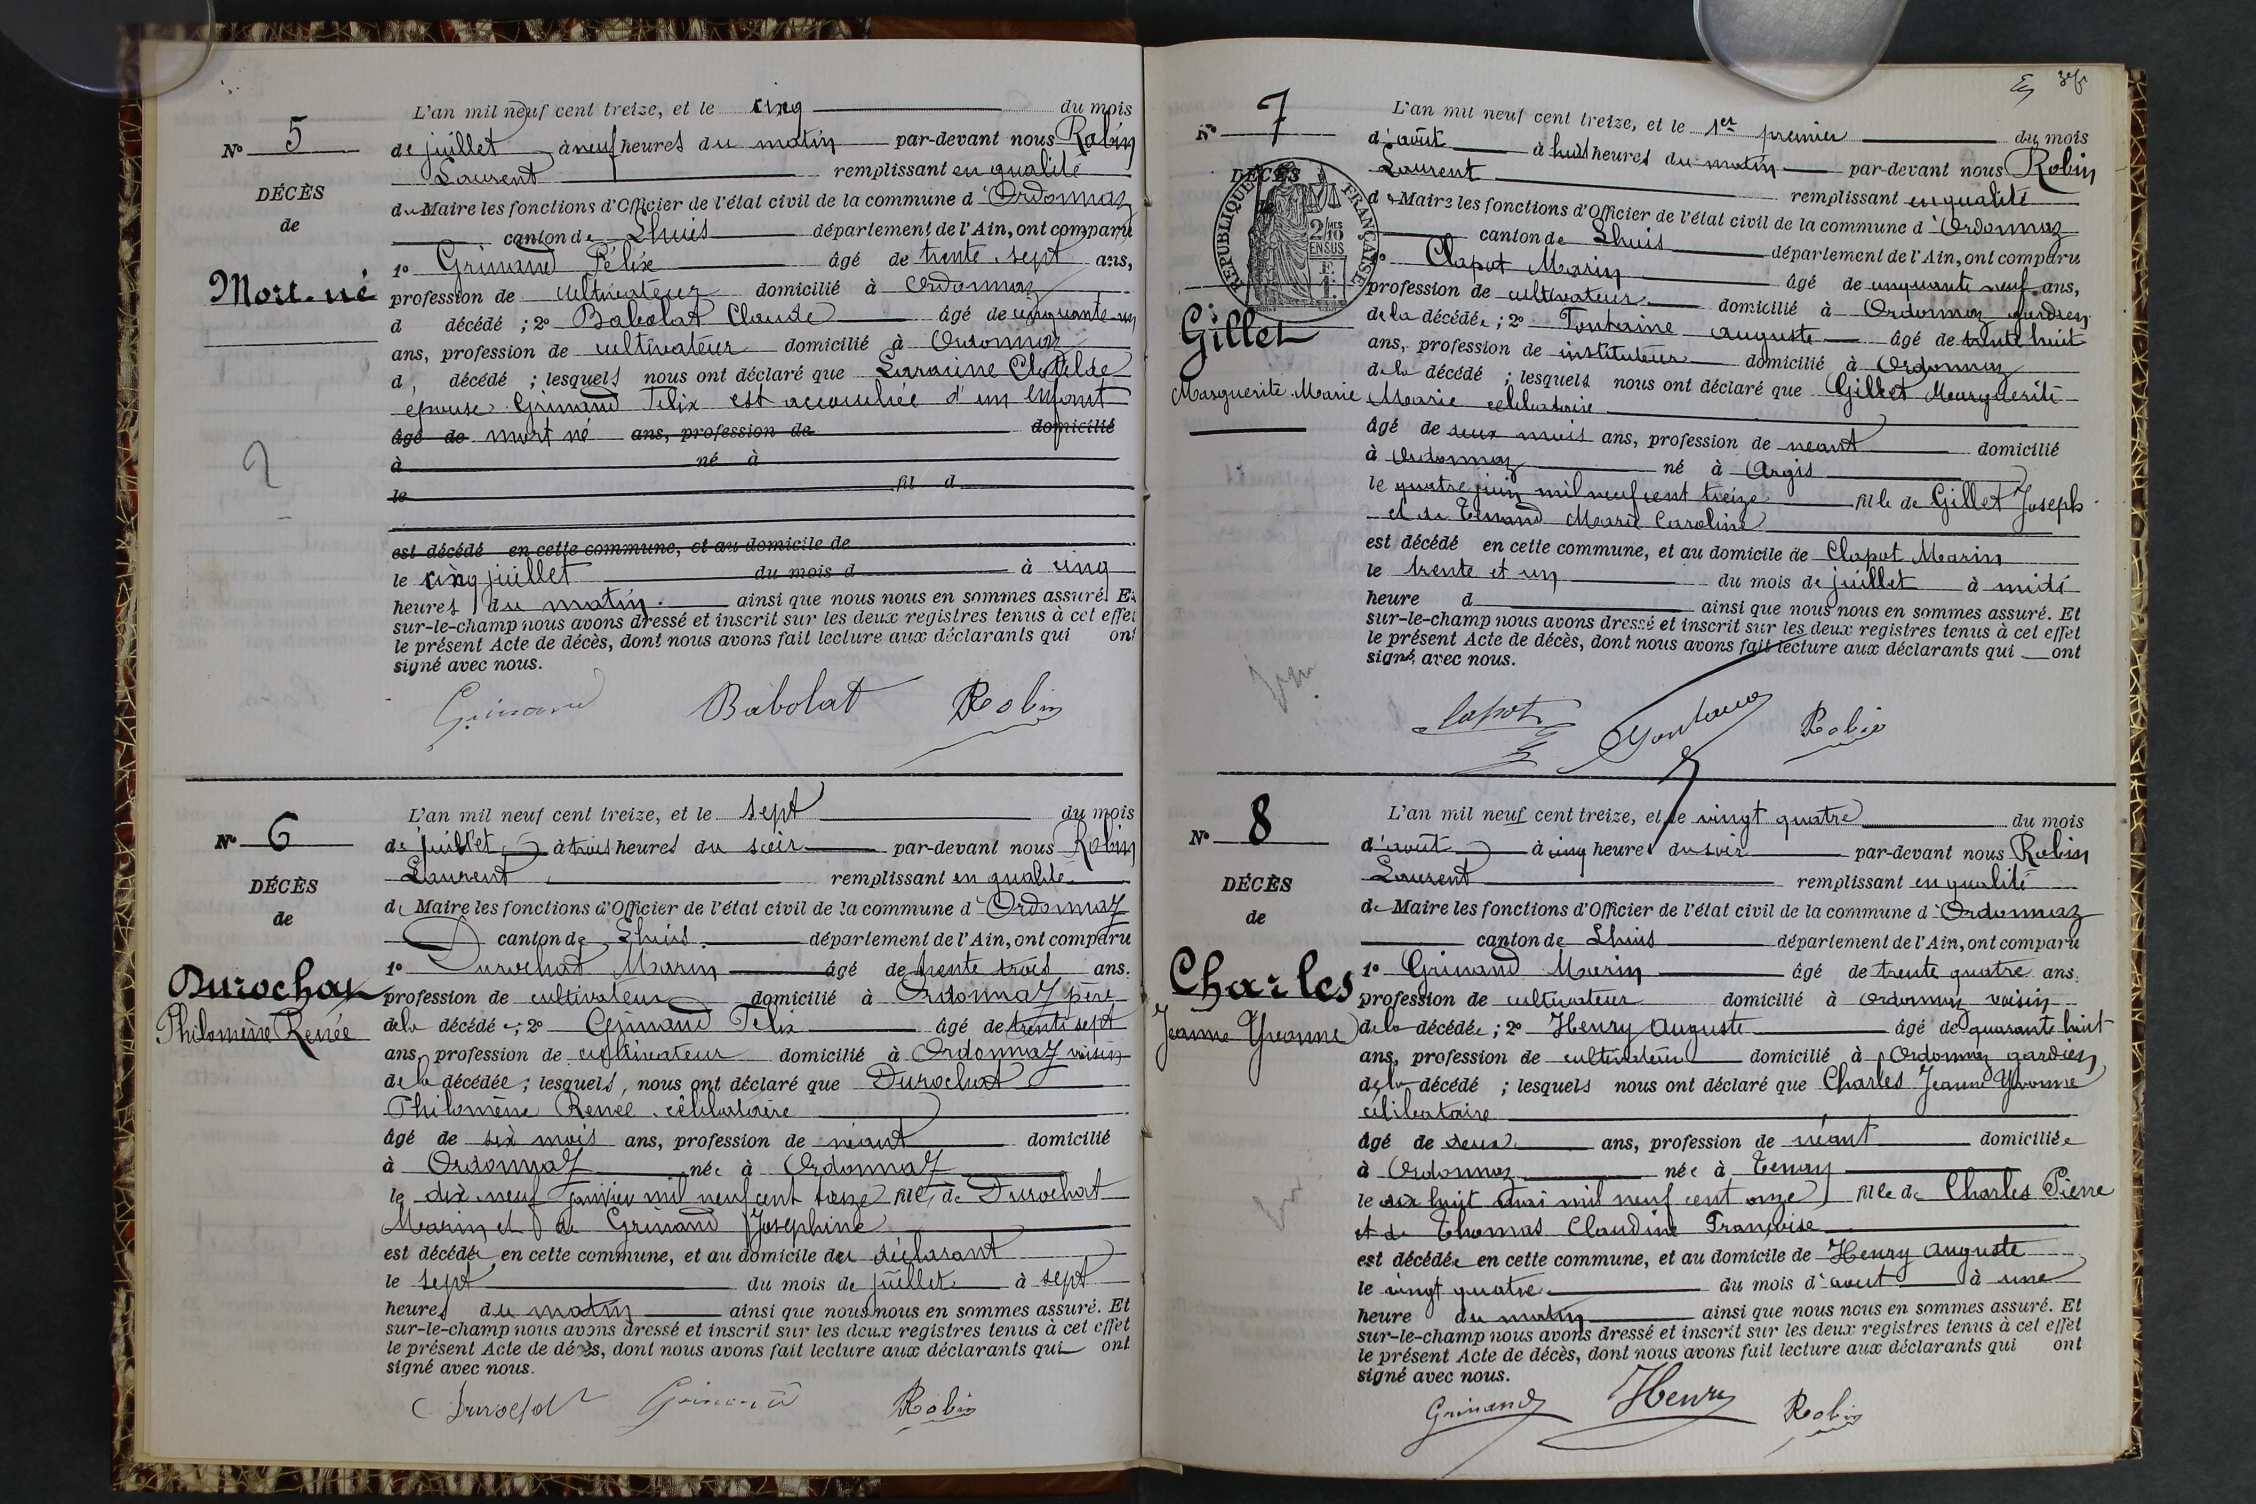 L'an mil neuf cent treize, et le cinq du mois
N° 5
de juillet à neuf heures du matin par-devant nous Robin
Laurent remplissant en qualité
DÉCÈS
de
Mort-né
du Maire les fonctions d'Officier de l'état civil de la commune d'Ordonnaz
canton de Lhuis département de l'Ain, ont comparu
1° Grinand Félix âgé de trente sept ans,
profession de cultivateur domicilié à Ordonnaz
d décédé ; 2° Babolat Claude âgé de cinquante un
ans, profession de cultivateur domicilié à Ordonnaz
d décédé ; lesquels nous ont déclaré que Clotilde
épouse Grinand Félix est accouchée d'un enfant
âgé de mort né ans, profession de domicilié
à né à
le fil d
est décédé en cette commune, et au domicile de
le cinq juillet du mois d à cinq
heures du matin ainsi que nous nous en sommes assuré. Et
sur-le-champ nous avons dressé et inscrit sur les deux registres tenus à cet effet
le présent Acte de décès, dont nous avons fait lecture aux déclarants qui ont
signé avec nous.
Grinand Babolat Robin
L'an mil neuf cent treize, et le sept du mois
N° 6
de juillet à trois heures du soir par-devant nous Robin
Laurent remplissant en qualité
DÉCÈS
de
Durochat
Philomène Renée
de Maire les fonctions d'Officier de l'état civil de la commune d'Ordonnaz
canton de Lhuis département de l'Ain, ont comparu
1° Durochat Marin âgé de trente trois ans.
profession de cultivateur domicilié à Ordonnaz père
de la décédée ; 2° Grinand Félix âgé de trente sept
ans, profession de cultivateur domicilié à Ordonnaz voisin
de la décédée ; lesquels nous ont déclaré que Durochat
Philomène Renée célibataire
âgé de six mois ans, profession de néant domicilié
à Ordonnaz née à Ordonnaz
le dix neuf janvier mil neuf cent treize fille de Durochat
Marin et de Grinand Joséphine
est décédée en cette commune, et au domicile du déclarant
le sept du mois de juillet à sept
heures du matin ainsi que nous nous en sommes assuré. Et
sur-le-champ nous avons dressé et inscrit sur les deux registres tenus à cet effet
le présent Acte de décès, dont nous avons fait lecture aux déclarants qui ont
signé avec nous.
Durochat Grinand Robin
L'an mil neuf cent treize, et le 1er premier du mois
N° 7
d'août à huit heures du matin par-devant nous Robin
Laurent remplissant en qualité
DÉCÈS
de
RÉPUBLIQUE FRANÇAISE
2/10 MES
EN SUS
Gillet
Marguerite Marie
de Maire les fonctions d'Officier de l'état civil de la commune d'Ordonnaz
canton de Lhuis département de l'Ain, ont comparu
1° Clapot Marin âgé de cinquante neuf ans,
profession de cultivateur domicilié à Ordonnaz gardien
de la décédée ; 2° Fontaine Auguste âgé de trente huit
ans, profession de instituteur domicilié à Ordonnaz
de la décédé ; lesquels nous ont déclaré que Gillet Marguerite
Marie célibataire
âgé de deux mois ans, profession de néant domicilié
à Ordonnaz né à Argis
le quatre juin mil neuf cent treize fille de Gillet Joseph
et de Marie Caroline
est décédé en cette commune, et au domicile de Clapot Marin
le trente et un du mois de juillet à midi
heure d ainsi que nous nous en sommes assuré. Et
sur-le-champ nous avons dressé et inscrit sur les deux registres tenus à cet effet
le présent Acte de décès, dont nous avons fait lecture aux déclarants qui ont
signé avec nous.
Clapot Fontaine Robin
L'an mil neuf cent treize, et le vingt quatre du mois
N° 8
d'août à cinq heures du soir par-devant nous Robin
Laurent remplissant en qualité
DÉCÈS
de
Charles
Jeanne Yvonne
de Maire les fonctions d'Officier de l'état civil de la commune d'Ordonnaz
canton de Lhuis département de l'Ain, ont comparu
1° Grinand Marin âgé de trente quatre ans.
profession de cultivateur domicilié à Ordonnaz voisin
de la décédée ; 2° Henry Auguste âgé de quarante huit
ans, profession de cultivateur domicilié à Ordonnaz gardien
de la décédé ; lesquels nous ont déclaré que Charles Jeanne Yvonne
célibataire
âgé de deux ans, profession de néant domiciliée
à Ordonnaz née à Tenay
le dix huit mai mil neuf cent onze fille de Charles Pierre
et de Thomas Claudine Françoise
est décédée en cette commune, et au domicile de Henry Auguste
le vingt quatre du mois d'aout à une
heure du matin ainsi que nous nous en sommes assuré. Et
sur-le-champ nous avons dressé et inscrit sur les deux registres tenus à cet effet
le présent Acte de décès, dont nous avons fait lecture aux déclarants qui ont
signé avec nous.
Grinand Henry Robin